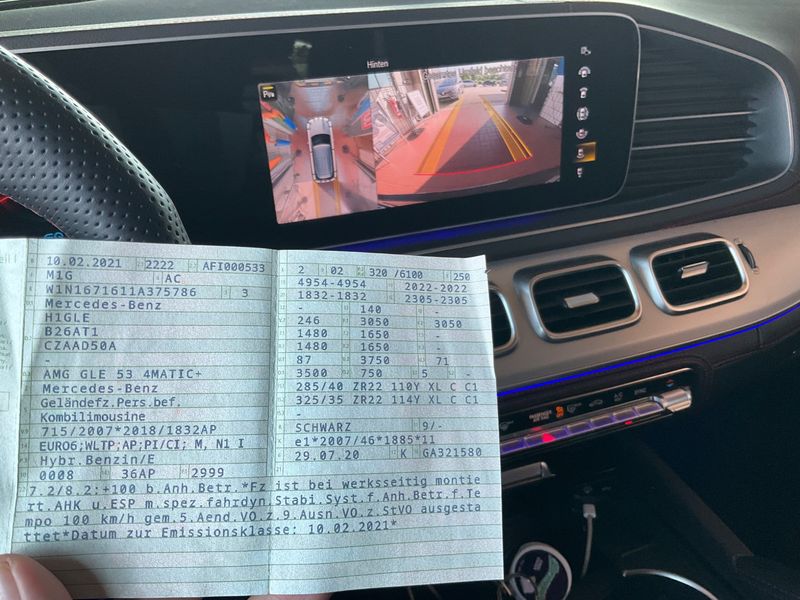 Hinten
10.02.2021 2222 AFI000533
M1G AC
W1N1671611A375786 3
Mercedes-Benz
H1GLE
B26AT1
CZAAD50A
-
AMG GLE 53 4MATIC+
Mercedes-Benz
Geländefz.Pers.bef.
Kombilimousine
715/2007*2018/1832AP
EURO6;WLTP;AP;PI/CI; M, N1 I
Hybr.Benzin/E
0008 36AP 2999
2 02 320 /6100 250
4954-4954 2022-2022
1832-1832 2305-2305
- 140 -
246 3050 3050
1480 1650 -
1480 1650 -
87 3750 71
3500 750 5 -
285/40 ZR22 110Y XL C C1
325/35 ZR22 114Y XL C C1
-
SCHWARZ 9/-
e1*2007/46*1885*11
29.07.20 K GA321580
7.2/8.2:+100 b.Anh.Betr.*Fz ist bei werksseitig montie
rt.AHK u.ESP m.spez.fahrdyn.Stabi.Syst.f.Anh.Betr.f.Te
mpo 100 km/h gem.5.Aend.VO.z.9.Ausn.VO.z.StVO ausgesta
ttet*Datum zur Emissionsklasse: 10.02.2021*